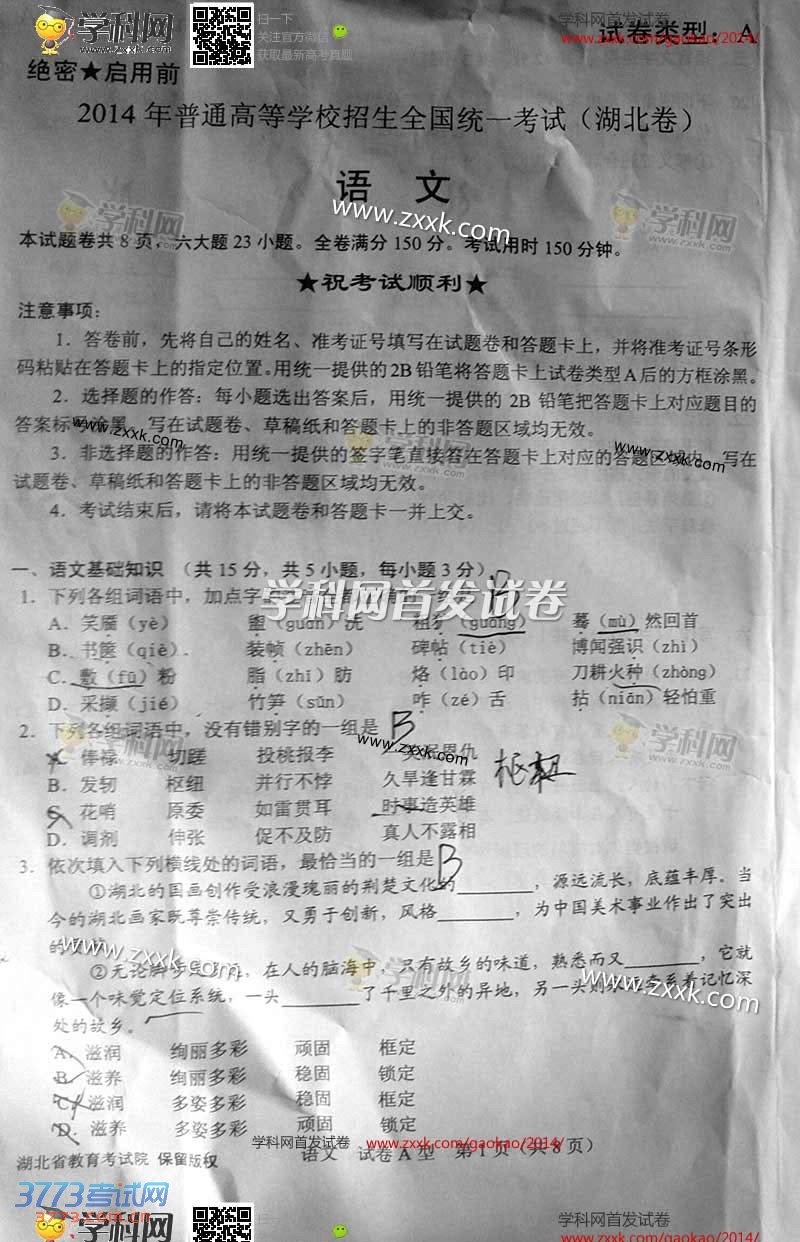 学科网
扫一下
关注官方微信
获取最新高考真题
学科网首发试卷
www.zxxk.com/gaokao/2014/
试卷类型：A
绝密★启用前
2014年普通高等学校招生全国统一考试（湖北卷）
语 文
学科网
学科网
www.zxxk.com
本试题卷共8页，六大题23小题。全卷满分150分。考试用时150分钟。
★祝考试顺利★
注意事项：
1．答卷前，先将自己的姓名、准考证号填写在试题卷和答题卡上，并将准考证号条形
码粘贴在答题卡上的指定位置。用统一提供的2B铅笔将答题卡上试卷类型A后的方框涂黑。
2．选择题的作答：每小题选出答案后，用统一提供的2B铅笔把答题卡上对应题目的
答案标号涂黑。写在试题卷、草稿纸和答题卡上的非答题区域均无效。
www.zxxk.com
学科网
www.zxxk.com
3．非选择题的作答：用统一提供的签字笔直接答在答题卡上对应的答题区域内。写在
试题卷、草稿纸和答题卡上的非答题区域均无效。
4．考试结束后，请将本试题卷和答题卡一并上交。
一、语文基础知识（共15分，共5小题，每小题3分）
1．下列各组词语中，加点字
B
学科网首发试卷
A．笑靥（yè） 盥（guàn）洗 （guǎng） 蓦（mù）然回首
B．书箧（qiè） 装帧（zhēn） 碑帖（tiè） 博闻强识（zhì）
C．敷（fū）粉 脂（zhī）肪 烙（lào）印 刀耕火种（zhòng）
D．采撷（jié） 竹笋（sǔn） 咋（zé）舌 拈（niān）轻怕重
2．下列各组词语中，没有错别字的一组是 B
学科网
www.zxxk.com
A．俸禄 切蹉 投桃报李 恩仇
B．发轫 枢纽 并行不悖 久旱逢甘霖
C．花哨 原委 如雷贯耳 时事造英雄
D．调剂 伸张 促不及防 真人不露相
3．依次填入下列横线处的词语，最恰当的一组是 B
①湖北的国画创作受浪漫瑰丽的荆楚文化的________，源远流长，底蕴丰厚。当
今的湖北画家既尊崇传统，又勇于创新，风格________，为中国美术事业作出了突出
的
www.zxxk.com
学科网
www.zxxk.com
②无论脚步 ，在人的脑海中，只有故乡的味道，熟悉而又________，它就
像一个味觉定位系统，一头________了千里之外的异地，另一头则 系着记忆深
处的故乡。
A．滋润 绚丽多彩 顽固 框定
B．滋养 绚丽多彩 稳固 锁定
C．滋润 多姿多彩 稳固 框定
D．滋养 多姿多彩 顽固 锁定
学科网首发试卷
www.zxxk.com/gaokao/2014/
湖北省教育考试院 保留版权
语文 试卷A型 第1页（共8页）
3773考试网
www.3773.com.cn
学科网
扫一下
关注官方微信
学科网首发试卷
www.zxxk.com/gaokao/2014/